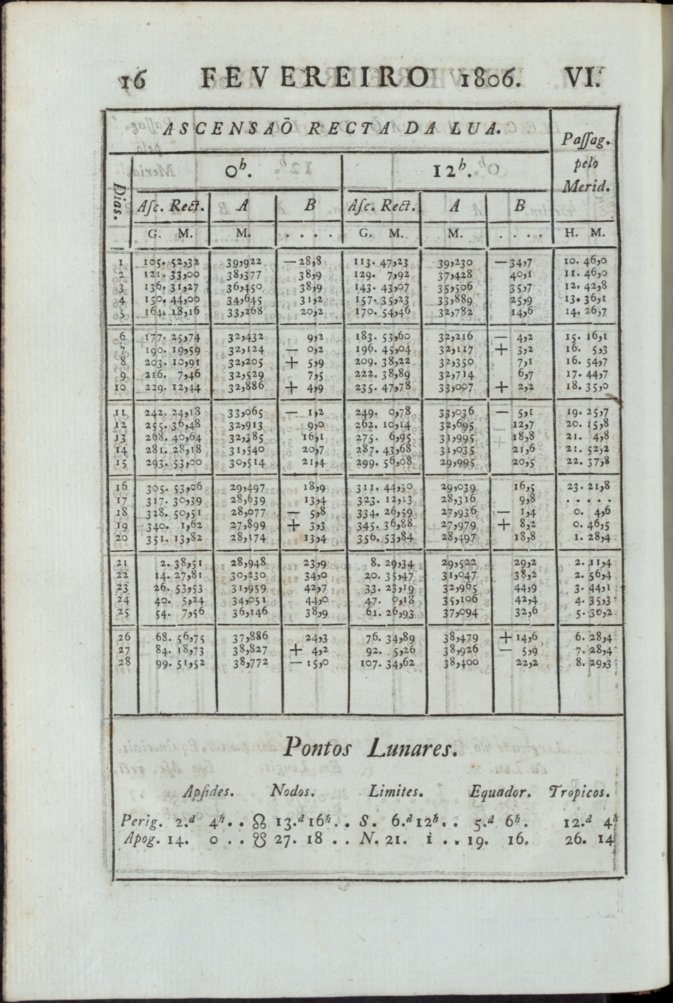 16 FEVEREIRO 1806. VI.
ASCENSAÕ RECTA DA LUA. Paſſag. pelo Merid.
Dias. 0h. 12h.
Aſc. Rect. A B Aſc. Rect. A B
G. M. M. . . . . G. M. M. . . . . H. M.
1 105. 52,32 39,922 — 28,8 113. 47,23 39,230 — 34,7 10. 46,0
2 121. 33,00 38,377 38,9 129. 7,92 37,428 40,1 11. 46,0
3 136. 31,27 36,450 38,9 143. 43,07 35,506 35,7 12. 42,8
4 150. 44,00 34,645 31,2 157. 35,23 33,889 25,9 13. 36,1
5 164. 18,16 33,268 20,2 170. 54,46 32,782 14,6 14. 26,7
6 177. 25,74 32,432 9,2 183. 53,60 32,216 — 4,2 15. 16,1
7 190. 19,59 32,124 — 0,2 196. 45,04 32,117 + 3,2 16. 5,3
8 203. 10,91 32,205 + 5,9 209. 38,22 32,350 7,1 16. 54,7
9 216. 7,46 32,529 7,5 222. 38,89 32,714 6,7 17. 44,7
10 229. 12,44 32,886 + 4,9 235. 47,78 33,007 + 2,2 18. 35,0
11 242. 24,18 33,065 — 1,2 249. 0,78 33,036 — 5,1 19. 25,7
12 255. 36,48 32,913 9,0 262. 10,14 32,695 12,7 20. 15,8
13 268. 40,64 32,385 16,1 275. 6,95 31,995 18,8 21. 4,8
14 281. 28,18 31,540 20,7 287. 43,68 31,035 21,6 21. 52,2
15 293. 53,00 30,514 21,4 299. 56,08 29,995 20,5 22. 37,8
16 305. 53,06 29,497 18,9 311. 44,30 29,039 16,5 23. 21,8
17 317. 30,39 28,639 13,4 323. 12,13 28,316 9,8 . . . . .
18 328. 50,51 28,077 — 5,8 334. 26,59 27,936 — 1,4 0. 4,6
19 340. 1,62 27,899 + 3,3 345. 36,88 27,979 + 8,2 0. 46,5
20 351. 13,82 28,174 13,4 356. 53,84 28,497 18,8 1. 28,4
21 2. 38,51 28,948 23,9 8. 29,34 29,522 29,2 2. 11,4
22 14. 27,81 30,230 34,0 20. 35,47 31,047 38,2 2. 56,4
23 26. 53,53 31,959 42,7 33. 23,19 32,965 44,9 3. 44,1
24 40. 5,24 34,051 44,0 47. 0,18 35,106 42,4 4. 35,3
25 54. 7,56 36,146 38,9 61. 26,93 37,094 32,6 5. 30,2
26 68. 56,75 37,886 24,3 76. 34,89 38,479 + 14,6 6. 28,4
27 84. 18,73 38,827 + 4,2 92. 5,26 38,926 — 5,9 7. 28,4
28 99. 51,52 38,772 — 15,0 107. 34,62 38,400 22,2 8. 29,3
Pontos Lunares.
Apſides. Nodos. Limites. Equador. Tropicos.
Perig. 2.d 4h . . ☊ 13.d 16h . . S. 6.d 12h . . 5.d 6h. 12.d 4h
Apog. 14. 0 . . ☋ 27. 18 . . N. 21. 1 . . 19. 16. 26. 14